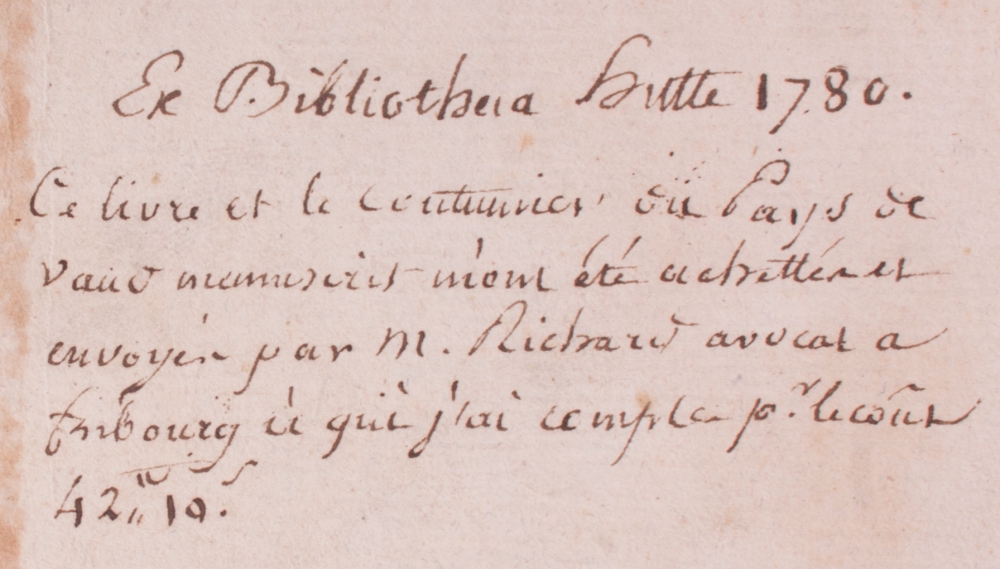 Ex Bibliotheca hutte 1780.
Ce livre et le coutumier du Pays de
vaud manuscrit m'ont été achettés et
envoyés par M. Richard avocat a
fribourg à qui j'ai compté pr. le coût
42 ₶ 10 s.